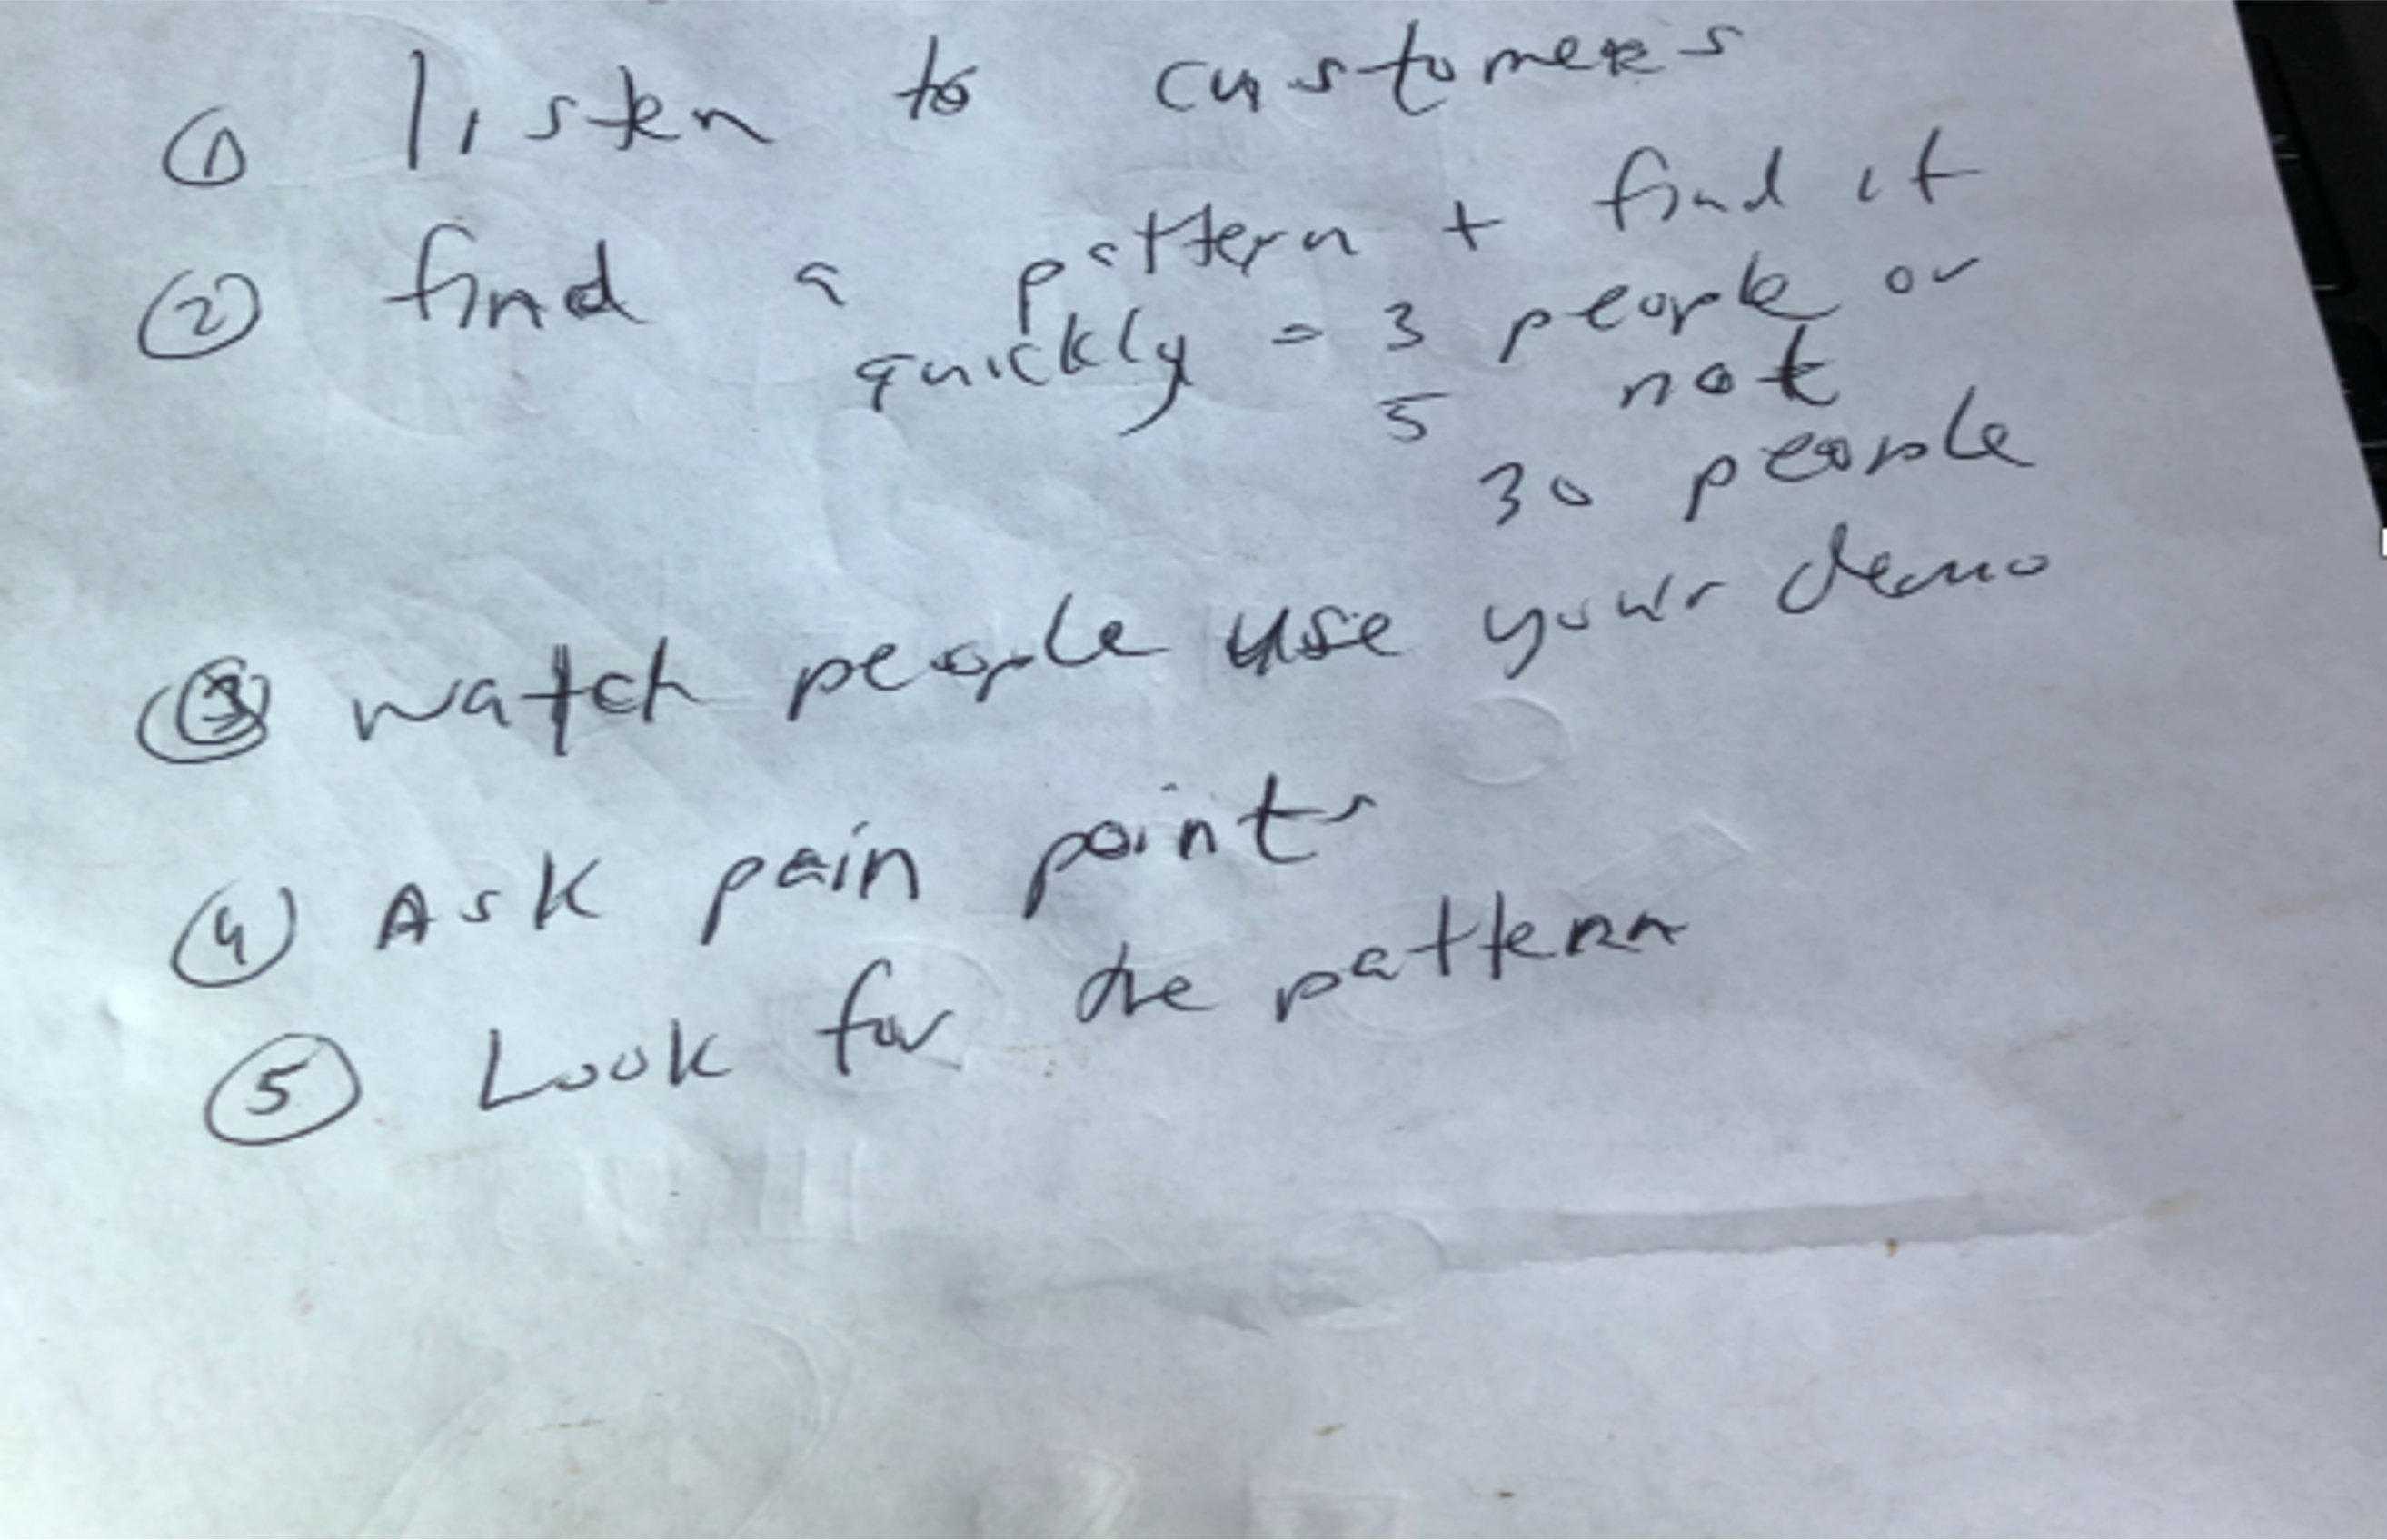 ① listen to customers
② find a pattern + find it
quickly = 3 people or
5 not
30 people
③ watch people use your demo
④ Ask pain points
⑤ Look for the pattern